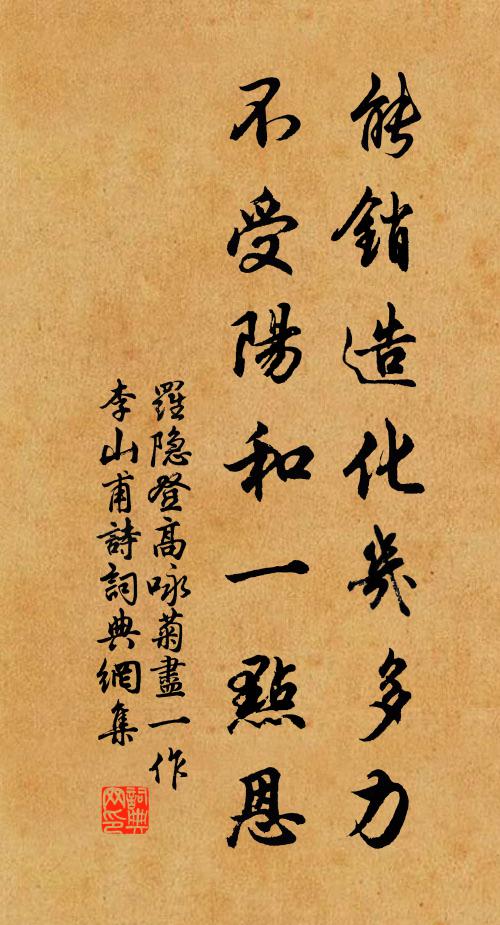 能銷造化幾多力
不受陽和一點恩
羅隐登高咏菊盡一作
李山甫詩詞典網集
詞典網印